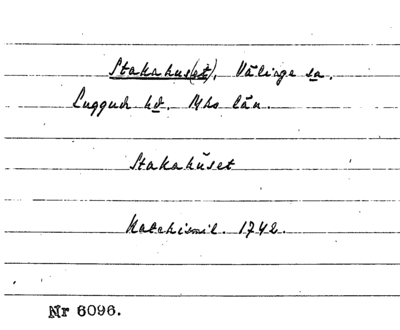 Stakahus(et), Välinge sa.
Luggude hd. Mhs län.
Stakahuset
Katechismil. 1742.
Nr 6096.